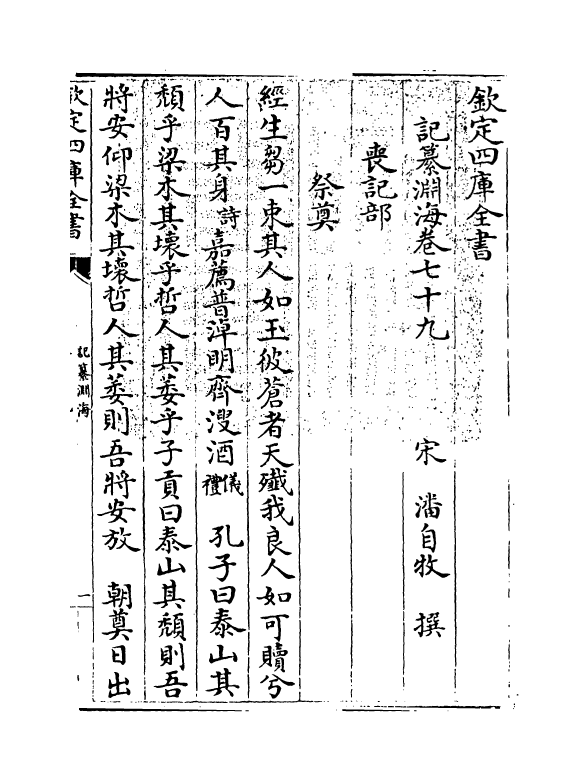 欽定四庫全書
記纂淵海卷七十九
宋 潘自牧 撰
喪記部
祭奠
經生芻一束其人如玉彼蒼者天殱我良人如可贖兮
人百其身詩嘉薦普淖明齊溲酒儀禮 孔子曰泰山其
頽乎梁木其壞乎哲人其萎乎子貢曰泰山其頽則吾
將安仰梁木其壞哲人其萎則吾將安放 朝奠日出
欽定四庫全書
記纂淵海
一